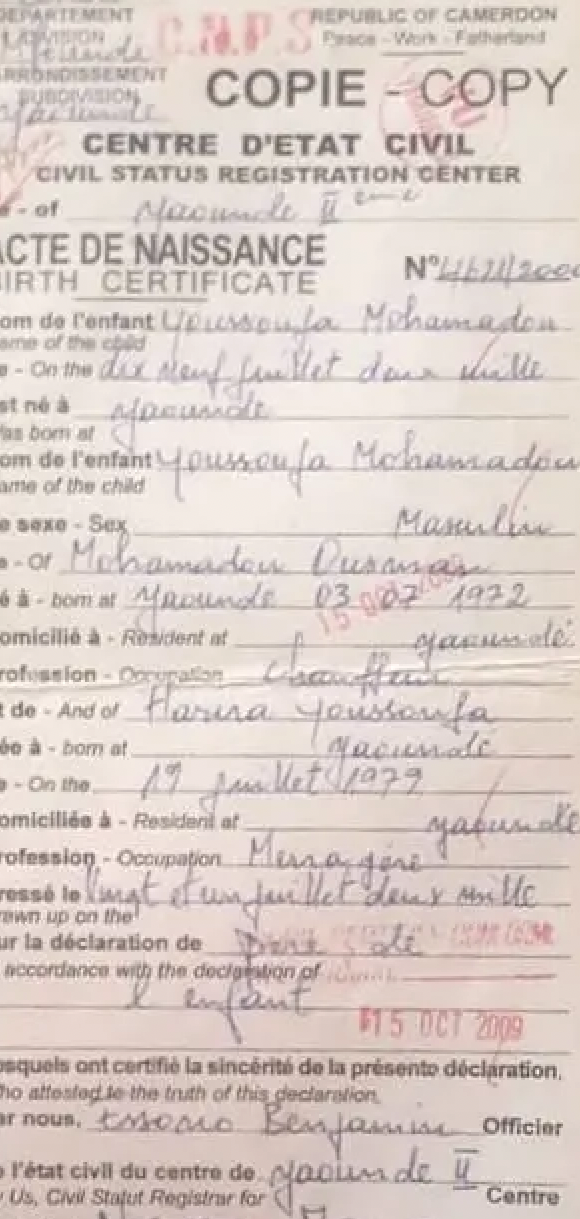 DEPARTEMENT
REPUBLIC OF CAMERDON
DIVISION
C.N.P.S
Peace - Work - Fatherland
ARRONDISSEMENT
SUBDIVISION
COPIE - COPY
Yaounde
CENTRE D'ETAT CIVIL
CIVIL STATUS REGISTRATION CENTER
- of Yaounde II eme
ACTE DE NAISSANCE
BIRTH CERTIFICATE
N°
om de l'enfant Youssoufa Mohamadou
ame of the child
e - On the dix neuf juillet deux mille
st né à Yaounde
as born at
om de l'enfant Youssoufa Mohamadou
ame of the child
e sexe - Sex Masculin
- Of Mohamadou Ousman
é à - born at Yaounde 03 07 1972
omicilié à - Resident at yaoundé
rofession - Occupation Chauffeur
t de - And of Harira Youssoufa
ée à - born at Yaoundé
e - On the 19 juillet 1979
omiciliée à - Resident at yaoundé
rofession - Occupation Menagère
ressé le Vingt et un juillet deux mille
rawn up on the
ur la déclaration de Père de
accordance with the declaration of
l'enfant
15 OCT 2009
esquels ont certifié la sincérité de la présente déclaration.
ho attested to the truth of this declaration.
ar nous, Essono Benjamin Officier
e l'état civil du centre de Yaounde II
y Us, Civil Statut Registrar for Centre